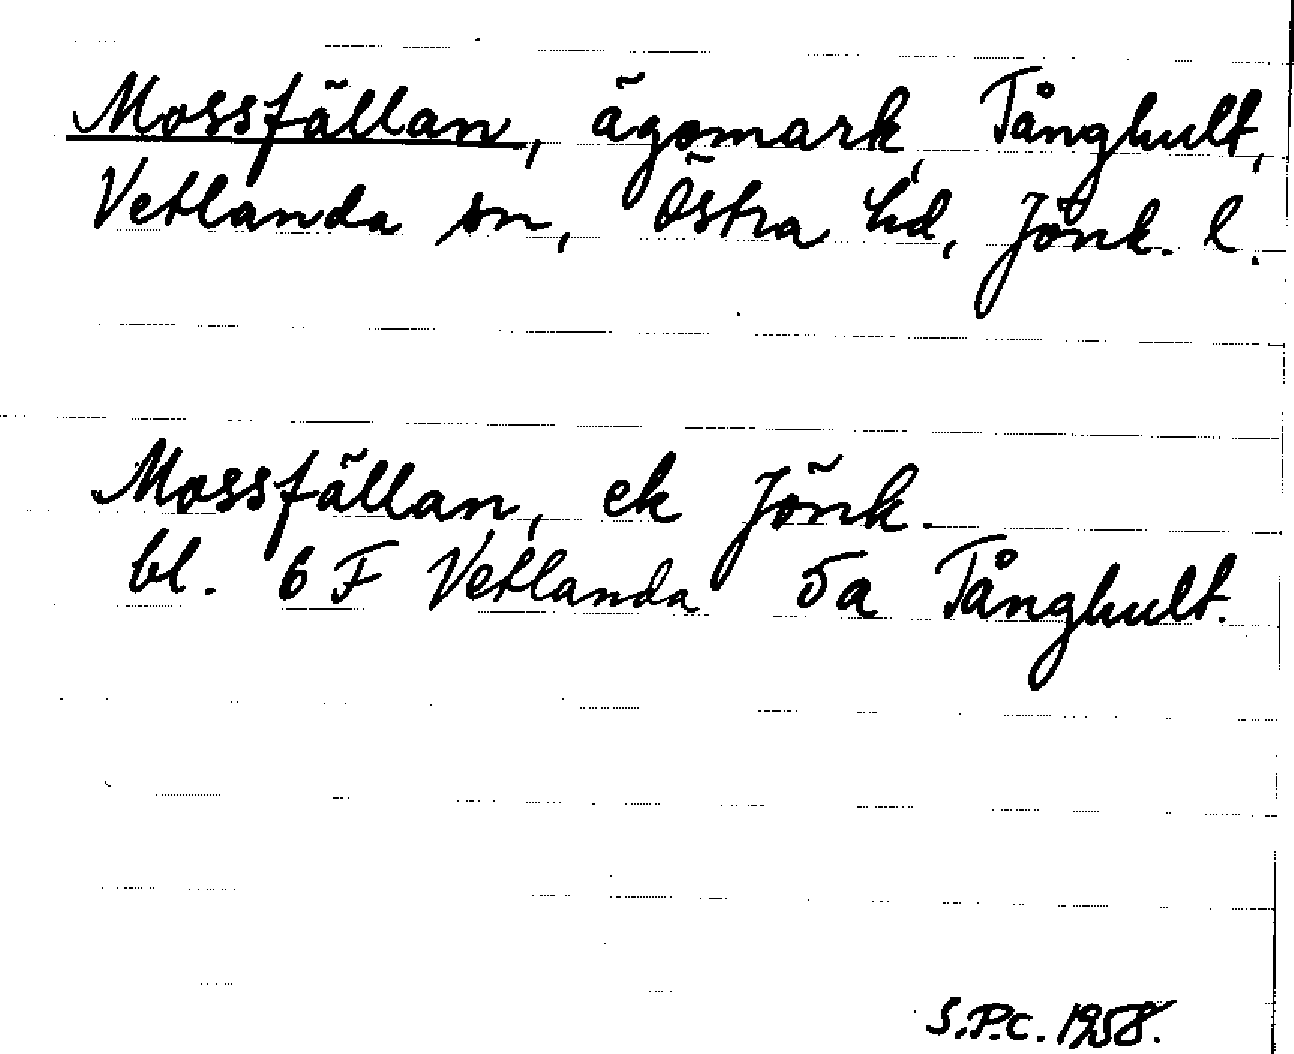 Mossfällan, ägomark, Tånghult,
Vetlanda sn, Östra hd, Jönk. l.
Mossfällan, ek Jönk.
bl. 6 F Vetlanda 5a Tånghult.
S.P.C. 1958.